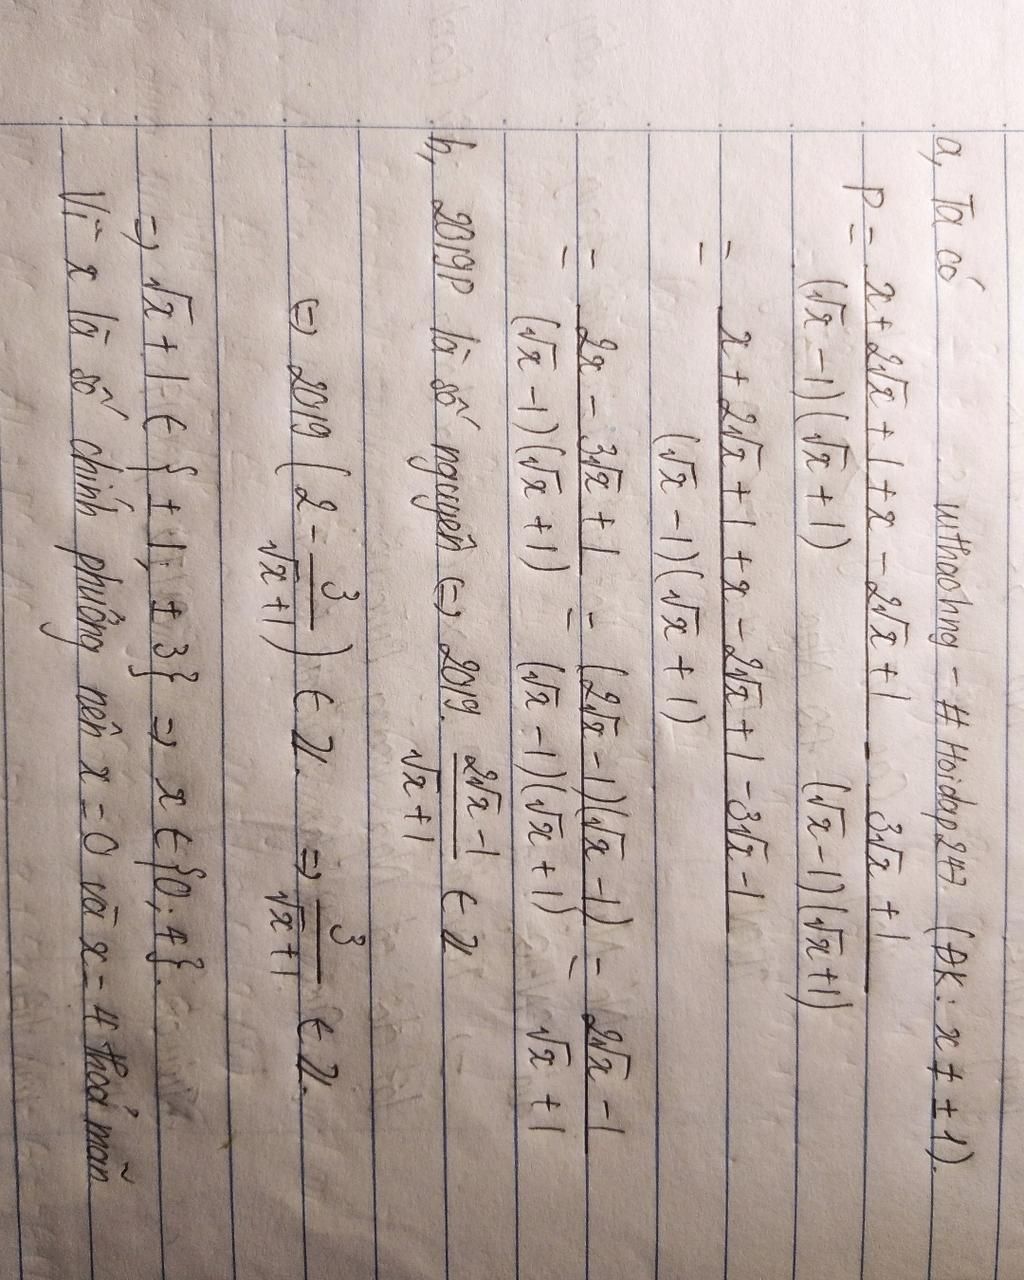 a, Ta có uthaohng - # Hoidap247. (ĐK: x ≠ ±1).
P = (x + 2√x + 1 + x - 2√x + 1)/((√x - 1)(√x + 1)) - (3√x + 1)/((√x - 1)(√x + 1))
= (x + 2√x + 1 + x - 2√x + 1 - 3√x - 1)/((√x - 1)(√x + 1))
= (2x - 3√x + 1)/((√x - 1)(√x + 1)) = ((2√x - 1)(√x - 1))/((√x - 1)(√x + 1)) = (2√x - 1)/(√x + 1)
b, 2019P là số nguyên ⇔ 2019. (2√x - 1)/(√x + 1) ∈ Z
⇔ 2019 (2 - 3/(√x + 1)) ∈ Z. ⇒ 3/(√x + 1) ∈ Z.
⇒ √x + 1 ∈ {±1; ±3} ⇒ x ∈ {0; 4}.
Vì x là số chính phương nên x = 0 và x = 4 thoả mãn